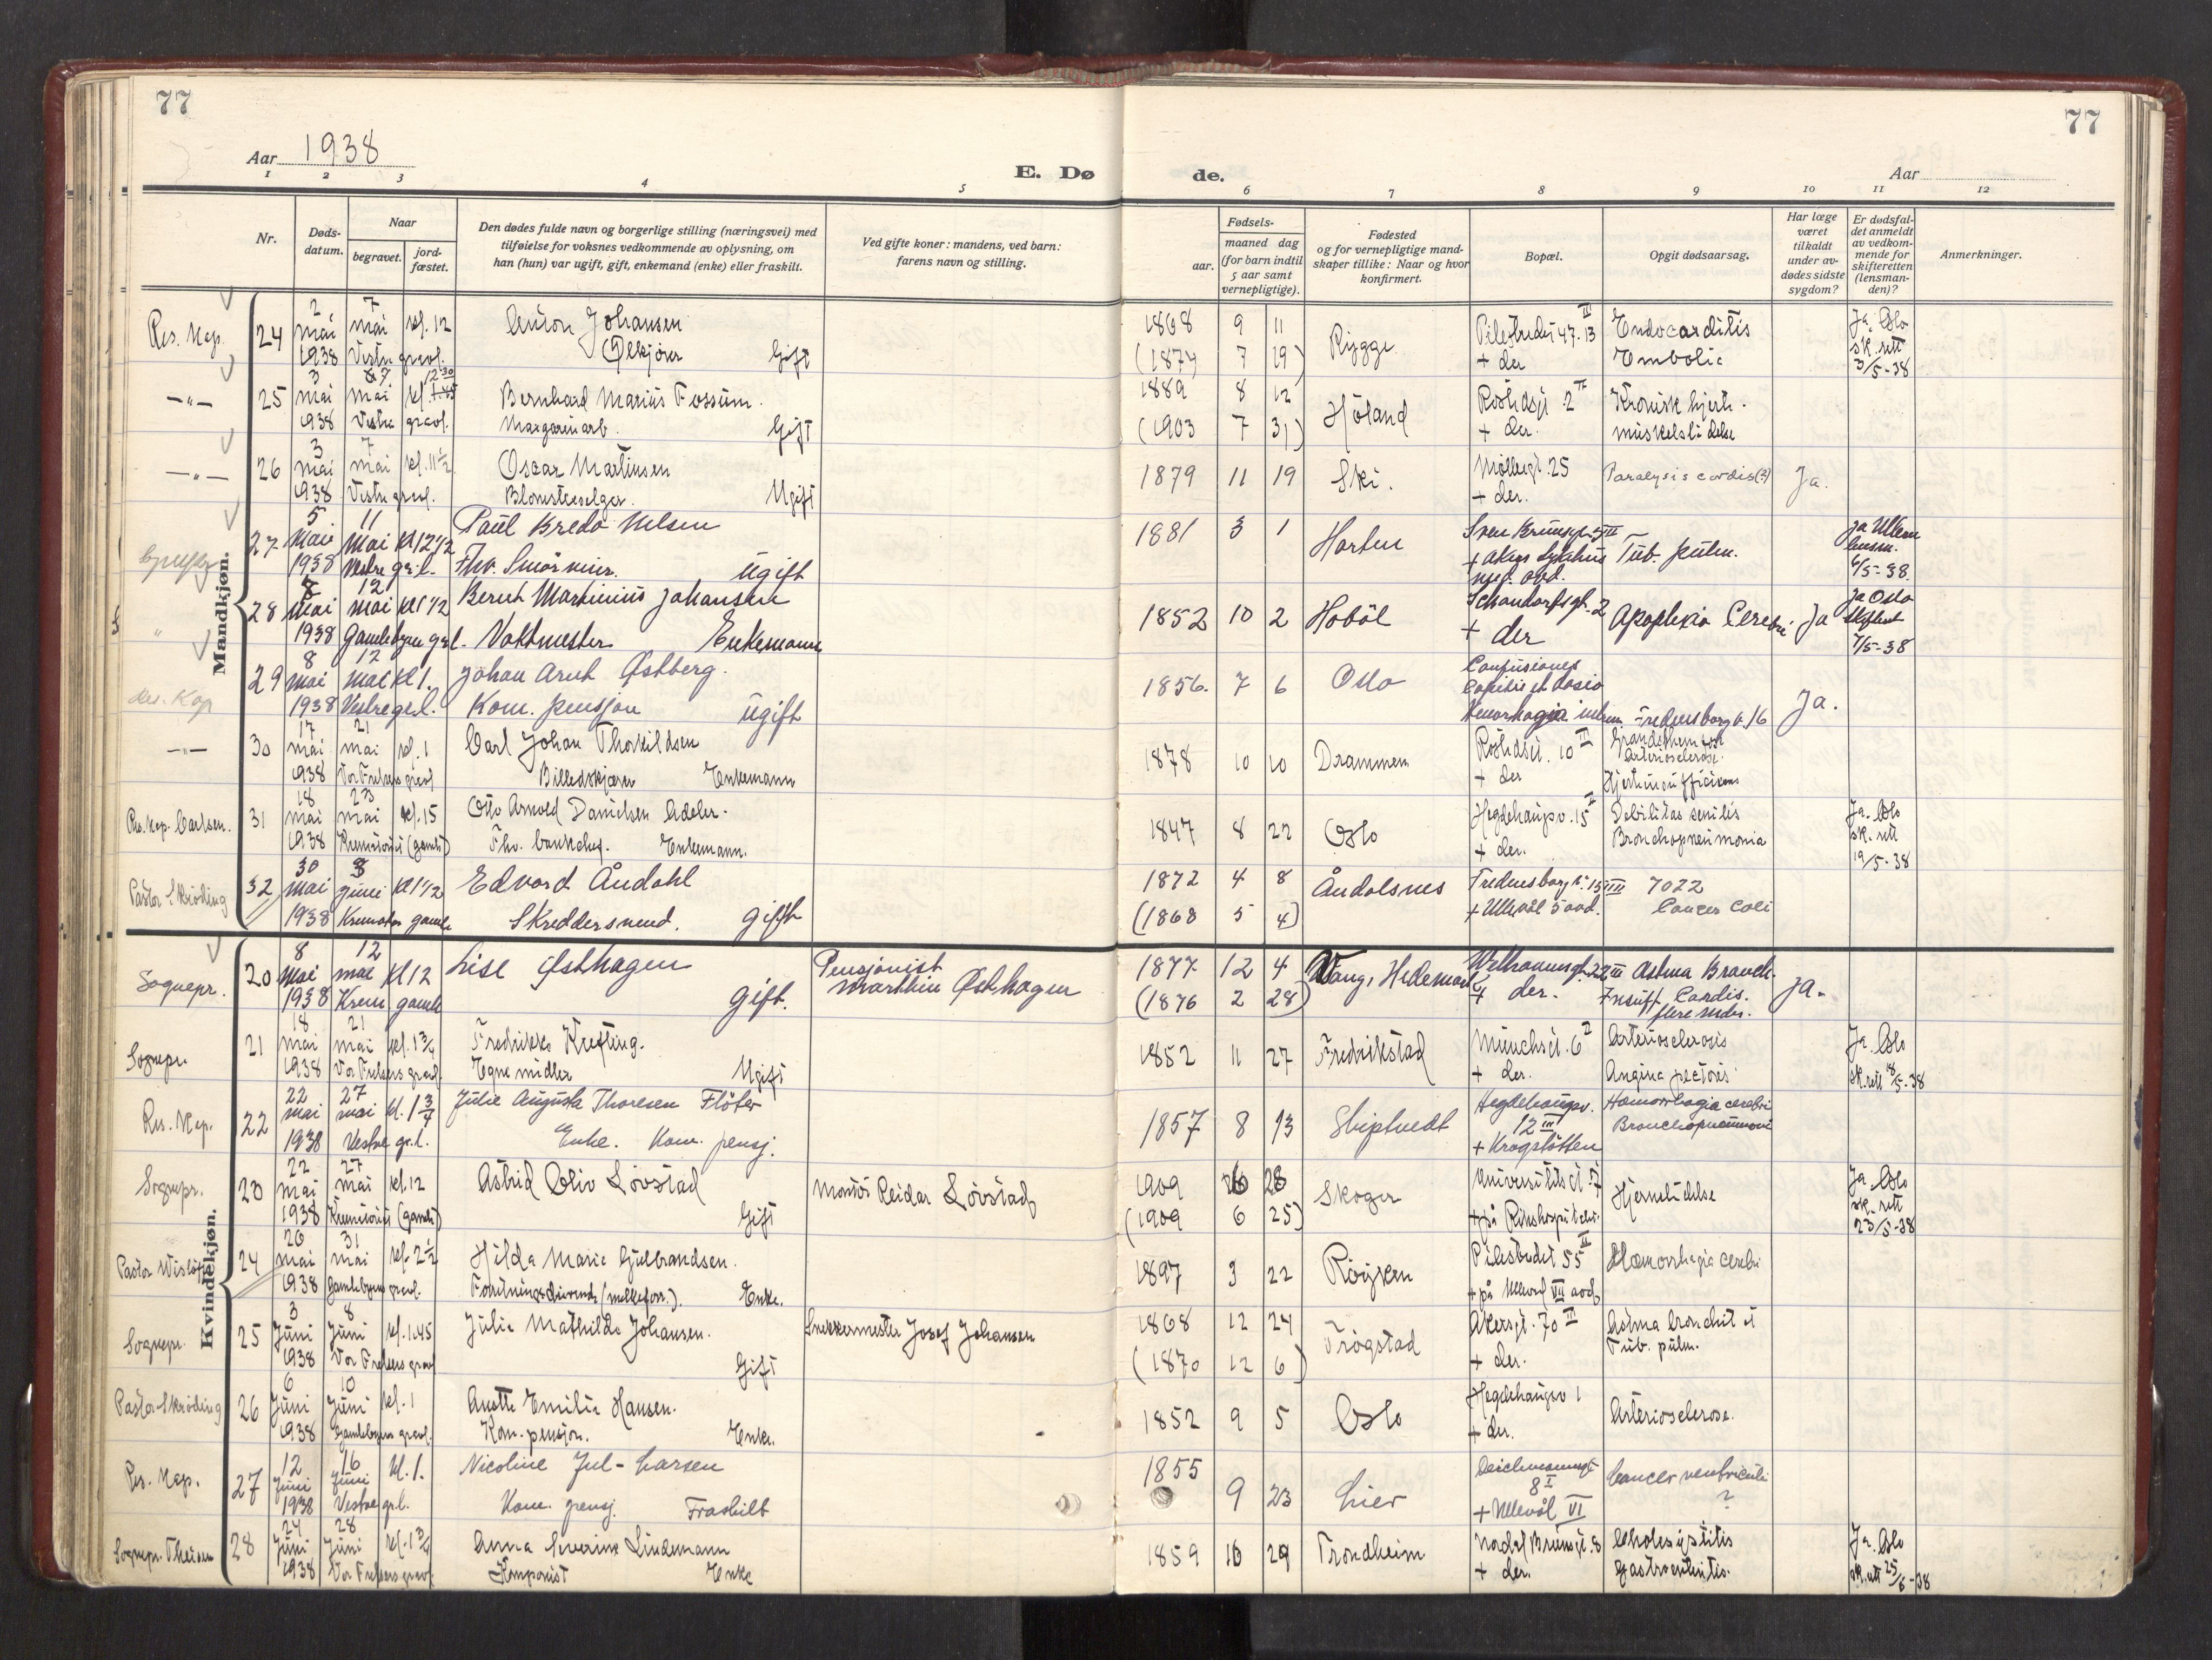 77
77
Aar 1938
E. Dø
de.
Aar
1 2 3 4 5 6 7 8 9 10 11 12
Nr.
Døds-
datum.
Naar
begravet.
jord-
fæstet.
Den dødes fulde navn og borgerlige stilling (næringsvei) med
tilføielse for voksnes vedkommende av oplysning, om
han (hun) var ugift, gift, enkemand (enke) eller fraskilt.
Ved gifte koner: mandens, ved barn:
farens navn og stilling.
Fødsels-
aar.
maaned dag
(for barn indtil
5 aar samt
vernepligtige).
Fødested
og for vernepligtige mand-
skaper tillike: Naar og hvor
konfirmert.
Bopæl.
Opgit dødsaarsag.
Har læge
været
tilkaldt
under av-
dødes sidste
sygdom?
Er dødsfal-
det anmeldt
av vedkom-
mende for
skifteretten
(lensman-
den)?
Anmerkninger.
Mandkjøn.
Res. Kap. 24 2 mai 1938 7 mai kl. 12 Vestre gravl.
Anton Johansen
Ølkjører Gift
1868 9 11
(1874 7 19)
Rygge
Pilestredet 47. 13 III
+ der
Endocarditis
Emboli
Ja. Oslo
sk. rett
3/5-38
—"— 25 3 mai 1938 7 mai kl. 12 30 Vestre gravl.
Bernhard Marius Fossum.
Margarinarb. Gift
1889 8 12
(1903 7 31)
Høland
+ der.
Kronisk hjerte-
muskellidelse
—"— 26 3 mai 1938 7 mai kl. 11 1/2 Vestre gravl.
Oscar Martinsen
Blomsterselger. Ugift
1879 11 19
Ski.
Møllergt. 25
+ der.
Paralysis cordis (?)
Ja.
27 5 Mai 1938 11 Mai kl 12 1/2 Vestre gr.l.
Paul Bredo Nilsen
Fhv. Ugift
1881 3 1
Horten
+ Aker Sykehus
med. avd.
Tub. pulm.
ja Ullern
lensm.
6/5-38.
28 mai 1938 12 mai kl 1 1/2 Gamlebyen gr.l.
Bernt Martinius Johansen
Vaktmester Enkemann
1852 10 2
Hobøl
Schandorfsgt. 2
+ der
Apoplexia Cerebri
Ja
ja Oslo
7/5-38
res. Kap 29 8 mai 1938 12 mai kl 1. Vestre gr.l.
Johan Arnt Østberg.
Kom. pensjon Ugift
1856. 7 6
Oslo
Fredensborgv. 16
Ja.
—"— 30 17 mai 1938 21 mai kl. 1 Vor Frelsers gravl
Carl Johan Thorkildsen
Billedskjærer Enkemann
1878 10 10
Drammen
+ der
Arteriosclerose.
Hjerteinsufficiens
Res. Kap. Carlsen. 31 18 mai 1938 23 mai kl. 15 Krematoriet (gamle)
Otto Arnold Danielsen Adeler.
Fhv. bankchef. Enkemann.
1847 8 22
Oslo
Hegdehaugsv. 15 II
+ der.
Debilitas senilis
Bronchopneumonia
Ja. Oslo
sk. rett
19/5-38
Pastor Skrøding 32 30 mai 1938 3 juni kl 1 1/2 Kremator gamle
Edvard Åndahl
Skreddersvend. gift
1872 4 8
(1868 5 4)
Åndalsnes
Fredensborgv. 15 III
+ Ullevål 5 avd.
7022
Cancer coli
Kvindekjøn.
Sognepr. 20 8 Mai 1938 12 mai kl 12 Krem gamle
Lise Østhagen
Gift.
Pensjonist
Marthin Østhagen
1877 12 4
(1876 2 28)
Vang, Hedemark
Welhavensgt. 22 III
+ der.
Astma Bronch.
Insuff. Cordis.
Ja.
Sognepr. 21 18 mai 1938 21 mai kl. 1 3/4 Vor Frelsers gravl.
Fredrikke Krefting.
Egne midler Ugift
1852 11 27
Fredrikstad
Munchsgt. 6 2
+ der.
Arteriosclerosis
Angina pectoris
Ja. Oslo
sk.rett 18/5-38
Res. Kap. 22 22 mai 1938 27 mai kl. 1 3/4 Vestre gr.l.
Julie Augusta Thoresen Fløter
Enke. Kom. pensj.
1857 8 13
Skiptvedt
Hegdehaugsv.
12 III
+ Krogstøtten
Hæmorrhagia cerebri
Bronchopneumoni
Sognepr. 23 22 mai 1938 27 mai kl. 12 Krematoriet (gamle)
Astrid Oliv Løvstad
Gift
Montør Reidar Løvstad
1909 6 28
(1909 6 25)
Skoger
Universitetsgt. 7
+ på Rikshospitalet.
Hjernelidelse
Ja. Oslo
sk. rett
23/5-38
Pastor Wisløff 24 26 mai 1938 31 mai kl. 2 1/2 Gamlebyens gravl.
Hilda Marie Gulbrandsen.
Forretningsdrivende (melkeforr.). Enke.
1897 3 22
Røyken
Pilestredet 55 II
+ på Ullevål VII avd.
Hæmorrhagia cerebri
Sognepr. 25 3 Juni 1938 8 Juni kl. 1.45 Vor Frelsers gravl
Julie Mathilde Johansen.
Gift
Snekkermester Josef Johansen
1868 12 24
(1870 12 6)
Trøgstad
Akersgt. 70 III
+ der.
Astma bronchit et
Tub. pulm.
Pastor Skrøding 26 6 Juni 1938 10 Juni kl. 1 Gamlebyens gravl.
Anette Emilie Hansen.
Kom. pensjon. Enke.
1852 9 5
Oslo
Hegdehaugsv 1
+ der.
Arteriosclerose.
Res. Kap. 27 12 Juni 1938 16 Juni kl. 1. Vestre gr.l.
Nicoline Jul-Larsen
Kom. pensj. Fraskilt
1855 9 23
Lier
Deichmannsgt
8 I
+ Ullevål VI
Cancer ventriculi
?
Sognepr. Theisen 28 24 Juni 1938 28 Juni kl. 1 3/4 Vor Frelsers gravl.
Anna Severine Lindemann
Komponist Enke
1859 10 29
Trondheim
Nordal Brunsgt. 8
+ der.
Cholecystitis
Gastroenteritis.
Ja. Oslo
sk.rett 25/6-38